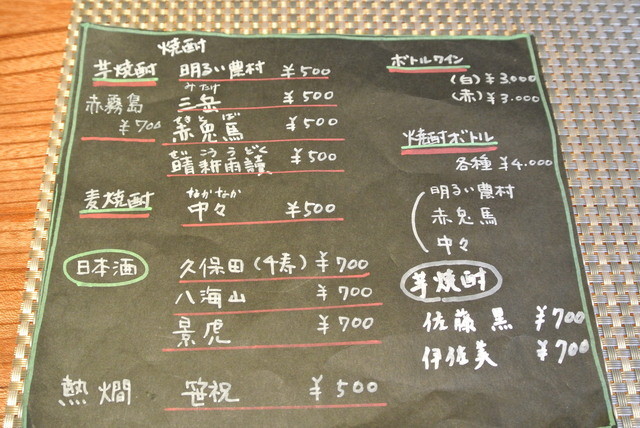 焼酎
芋焼酎 明るい農村 ¥500
みたけ
三岳 ¥500
赤霧島
¥700
せきとば
赤兎馬 ¥500
せいこううどく
晴耕雨讀 ¥500
麦焼酎
なかなか
中々 ¥500
日本酒
久保田(千寿) ¥700
八海山 ¥700
景虎 ¥700
熱燗 笹祝 ¥500
ボトルワイン
(白) ¥3,000
(赤) ¥3.000
焼酎ボトル
各種 ¥4.000
明るい農村
赤兎馬
中々
芋焼酎
佐藤 黒 ¥700
伊佐美 ¥700